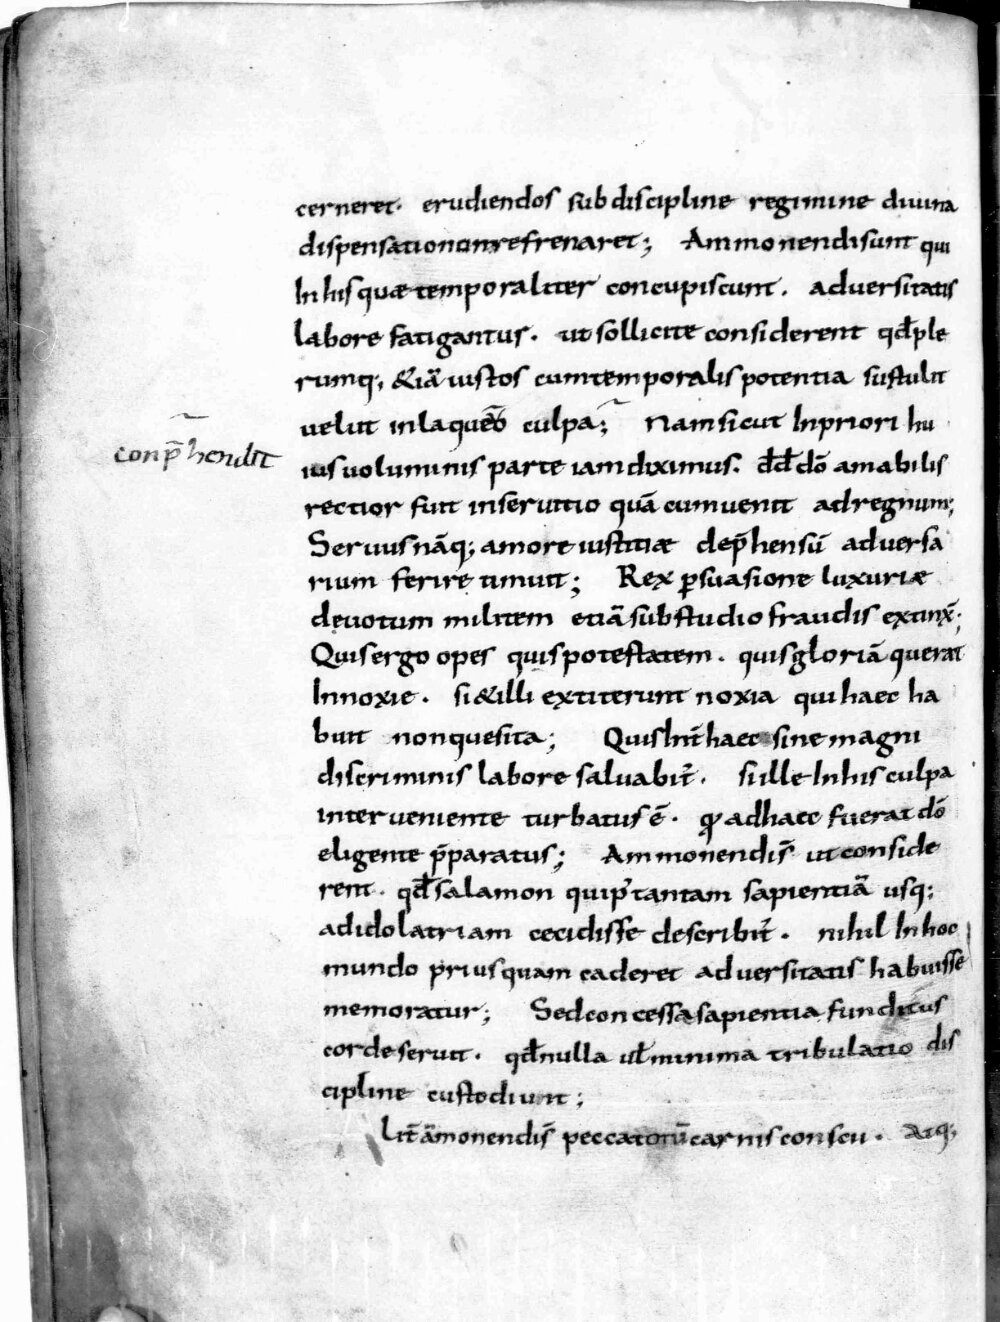 cerneret. erudiendos sub discipline regimine diuina
dispensatio non refrenaret; Ammonendi sunt qui
In his quæ temporaliter concupiscunt. aduersitatis
labore fatigantus. ut sollicite considerent qđ ple
rumq; &iā iustos cum temporalis potentia sustulit
uelut in laqueo culpa; Nam sicut In priori hu
conp̄hendit
ius uoluminis parte iam diximus. dd̄ dō amabilis
rectior fuit in seruitio quā cum uenit ad regnum;
Seruus nāq; amore iustitiæ dep̄hensū aduersa
rium ferire timuit; Rex ꝑsuasione luxuriæ
deuotum militem etiā sub studio fraudis extinx̄;
Quis ergo opes quis potestatem. quis gloriā querat
Innoxie. si & illi extiterunt noxia qui haec ha
buit non quesita; Quis Int̄ haec sine magni
discriminis labore saluabit̄. si ille In his culpa
interueniente turbatus ē. qui ad haec fuerat dō
eligente p̄paratus; Ammonendis̄ ut conside
rent. qđ salamon qui p' tantam sapientiā usq;
ad idolatriam cecidisse describit̄. nihil In hoc
mundo prius quam caderet aduersitatis habuisse
memoratur; Sed concessa sapientia funditus
corde seruit. qđ nulla uł minima tribulatio dis
cipline custodiunt;
Alit̄ āmonendis̄ peccatorū carnis conscii. Atq;